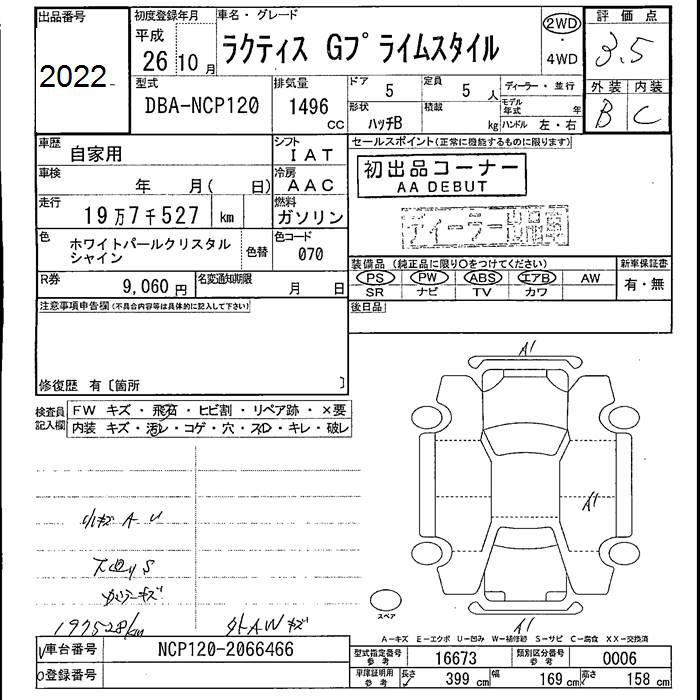 出品番号
2022
初度登録年月
平成
26年10月
車名・グレード
ラクティス Gプライムスタイル
2WD
・
4WD
評価点
3.5
外装 内装
B C
型式
DBA-NCP120
排気量
1496
CC
ドア
5
定員
5人
形状
ハッチB
積載
kg
ディーラー・並行
モデル年式 年
ハンドル 左・右
車歴
自家用
シフト
IAT
車検
年 月( 日)
冷房
AAC
走行
19万7千527 km
燃料
ガソリン
色
ホワイトパールクリスタル
シャイン
色替
色コード
070
R券
9,060円
名変通知期限
月 日
セールスポイント(正常に機能するものに限ります)
初出品コーナー
AA DEBUT
ディーラー出品店
装備品(純正品に限り○をつけてください)
新車保証書
PS PW ABS エアB AW
有・無
SR ナビ TV カワ
後日品
注意事項申告欄(不具合内容等は具体的に記入して下さい)
修復歴 有〔箇所 〕
検査員
記入欄
FW キズ・飛石・ヒビ割・リペア跡・×要
内装 キズ・汚レ・コゲ・穴・スレ・キレ・破レ
小キズ A U
197528/km
外AWキズ
A1
A1
A1
スペア
A-キズ E-エクボ U-凹み W-補修跡 S-サビ C-腐食 XX-交換済
車台番号
NCP120-2066466
登録番号
型式指定番号
参考
16673
類別区分番号
参考
0006
車庫証明用
参考
長さ
399 cm
幅
169 cm
高さ
158 cm